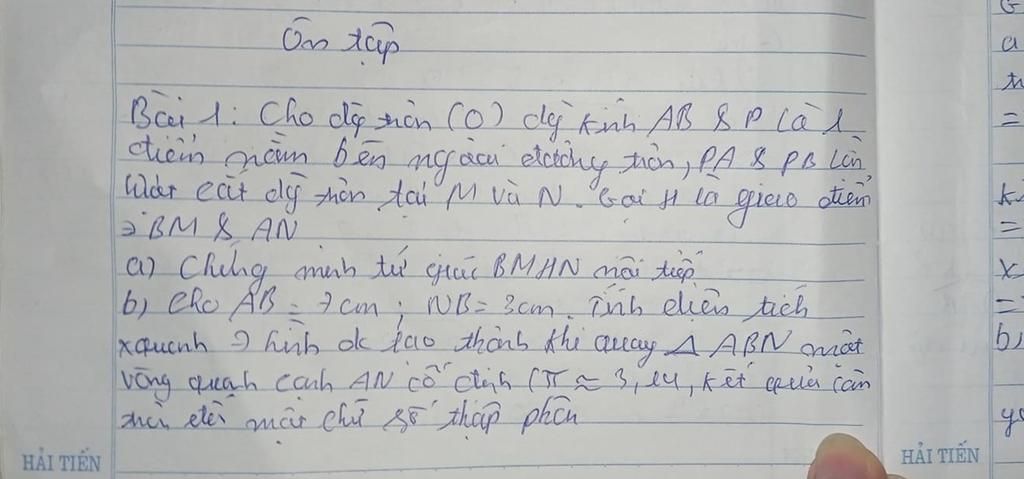 Ôn tập
Bài 1: Cho đg tròn (O) đg kính AB & P là 1
điểm nằm bên ngoài đường tròn, PA & PB lần
lượt cắt đg tròn tại M và N. Gọi H là giao điểm
BM & AN
a) Chứng minh tứ giác BMHN nội tiếp
b) Cho AB = 7cm; NB = 3cm. Tính diện tích
xquanh hình đc tạo thành khi quay Δ ABN một
vòng quanh cạnh AN cố định (π ≈ 3,14, kết quả làm
tròn đến một chữ số thập phân
HẢI TIẾN
HẢI TIẾN
a
=
=
x
=
b)